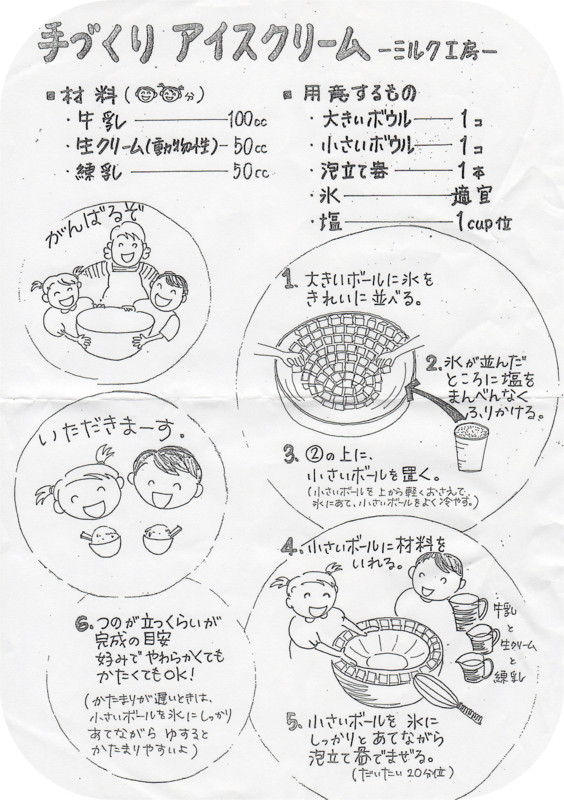 手づくり アイスクリーム ーミルク工房ー
■材料(分)
・牛乳 ―― 100cc
・生クリーム(動物性) - 50cc
・練乳 ―― 50cc
■用意するもの
・大きいボウル ―― 1コ
・小さいボウル ―― 1コ
・泡立て器 ―― 1本
・氷 ―― 適宜
・塩 ―― 1cup位
がんばるぞ
1. 大きいボールに氷を
きれいに並べる。
2. 氷が並んだ
ところに塩を
まんべんなく
ふりかける。
3. ②の上に、
小さいボールを置く。
(小さいボールを上から軽くおさえて、
氷にあて、小さいボールをよく冷やす。)
いただきまーす。
4. 小さいボールに材料を
いれる。
牛乳
と
生クリーム
と
練乳
5. 小さいボールを 氷に
しっかりと あてながら
泡立て器でまぜる。
(だいたい 20分位)
6. つのが立つくらいが
完成の目安
好みで やわらかくても
かたくてもOK!
(かたまりが遅いときは、
小さいボールを氷にしっかり
あてながら ゆすると
かたまりやすいよ)